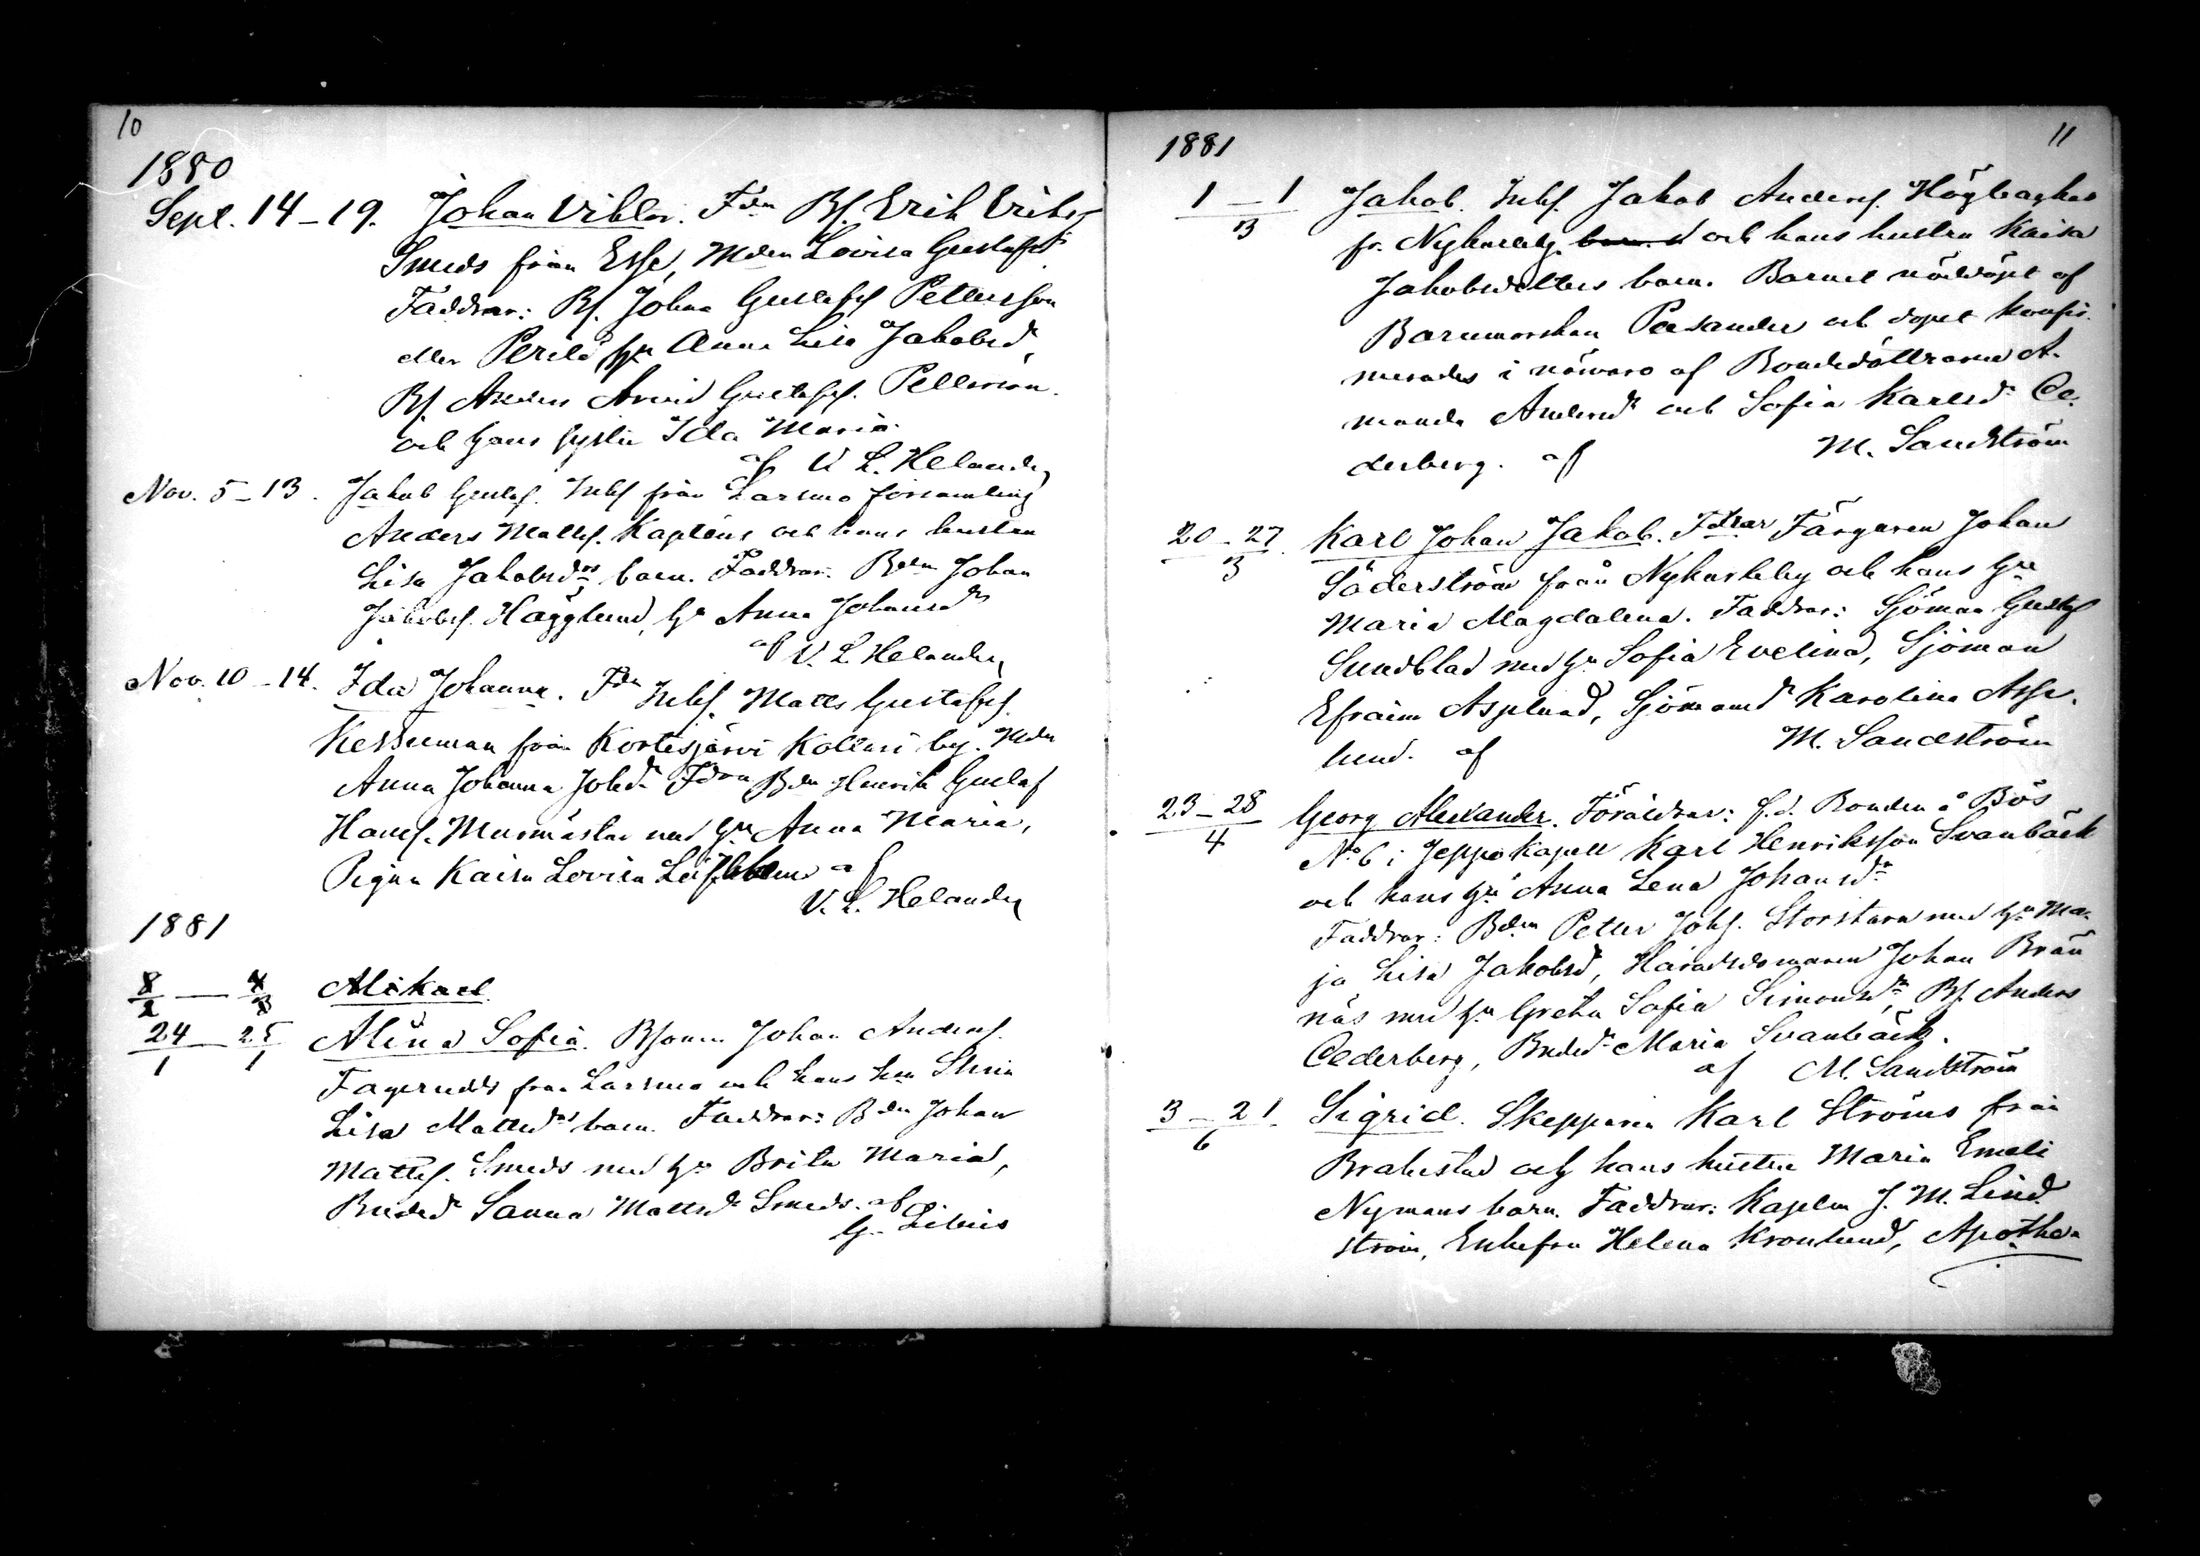 10
1880
Sept. 14–19. Johan Viktor. Fdn Bs. Erik Eriks.
Smeds från Esse, Mdn Lovisa Gustafsd.
Faddrar: Bs. Johan Gustafss Pettersson
eller Perilä hu Anna Lisa Jakobsd,
Bs. Anders Arvid Gustafss. Pettersson.
och hans syster Ida Maria.
af V. L. Helander
Nov. 5–13. Jakob Gustaf. Inhs från Larsmo församling
Anders Matts. Kapténs och hans hustru
Lisa Jakobsdrs barn. Faddrar: Bdn Johan
Jakobss. Hägglund, hu Anna Johansdr
af V. L. Helander
Nov. 10–14. Ida Johanna. Fdn Inhs. Matts Gustafss.
från Kortesjärvi by. Mdn
Anna Johanna Johsdr Fdrn Bdn Henrik Gustaf
Hanss. Murmästar med hu Anna Maria,
Pigan Kaisa Lovisa af
V. L. Helander
1881
8/2 — 4/3 Mikael
24/1 — 25/1 Alina Sofia. Bsonen Johan Anderss.
Fagerudds från Larsmo och hans hu Stina
Lisa Mattsdrs barn. Faddrar: Bdn Johan
Mattss. Smeds med hu Brita Maria,
Bondedr Sanna Mattsdr Smeds. af
G. Libius
1881
11
1–1/3 Jakob. Inhs. Jakob Anderss. Högbaghas
fr. Nykarleby och hans hustru Kaisa
Jakobsdotters barn. Barnet nöddöpt af
Barnmorskan Pesander och dopet konfir-
merades i närvaro af Bondedöttrarna A-
manda Andersdr och Sofia Karlsdr Ce-
derberg. af M. Sandström
20–27/3 Karl Johan Jakob. Fdrar Färgaren Johan
Söderström från Nykarleby och hans hu
Maria Magdalena. Faddrar: Sjöman Gustaf
Sundblad med hu Sofia Evelina, Sjöman
Efraim Asplund, Sjömansd Karolina Asp-
lund. af M. Sandström
23–28/4 Georg Alexander. Föräldrar: f.d. Bonden å Bös
No 6 i Jeppo Kapell Karl Henriksson Svanbäck
och hans hu Anna Lena Johansdr
Faddrar: Bdn Petter Johs. Storstara med hu Ma-
ja Lisa Jakobsd, Häradsdomaren Johan Brän
näs med hu Greta Sofia Simonsdr, Bs. Anders
Cederberg, Bondedr Maria Svanbäck.
af M. Sandström
3–21/6 Sigrid. Skepparen Karl Ströms från
Brahestad och hans hustru Maria Emeli
Nymans barn. Faddrar: Kapten J. M. Lind
ström, Enkefru Helena Kronlund, Apothe-